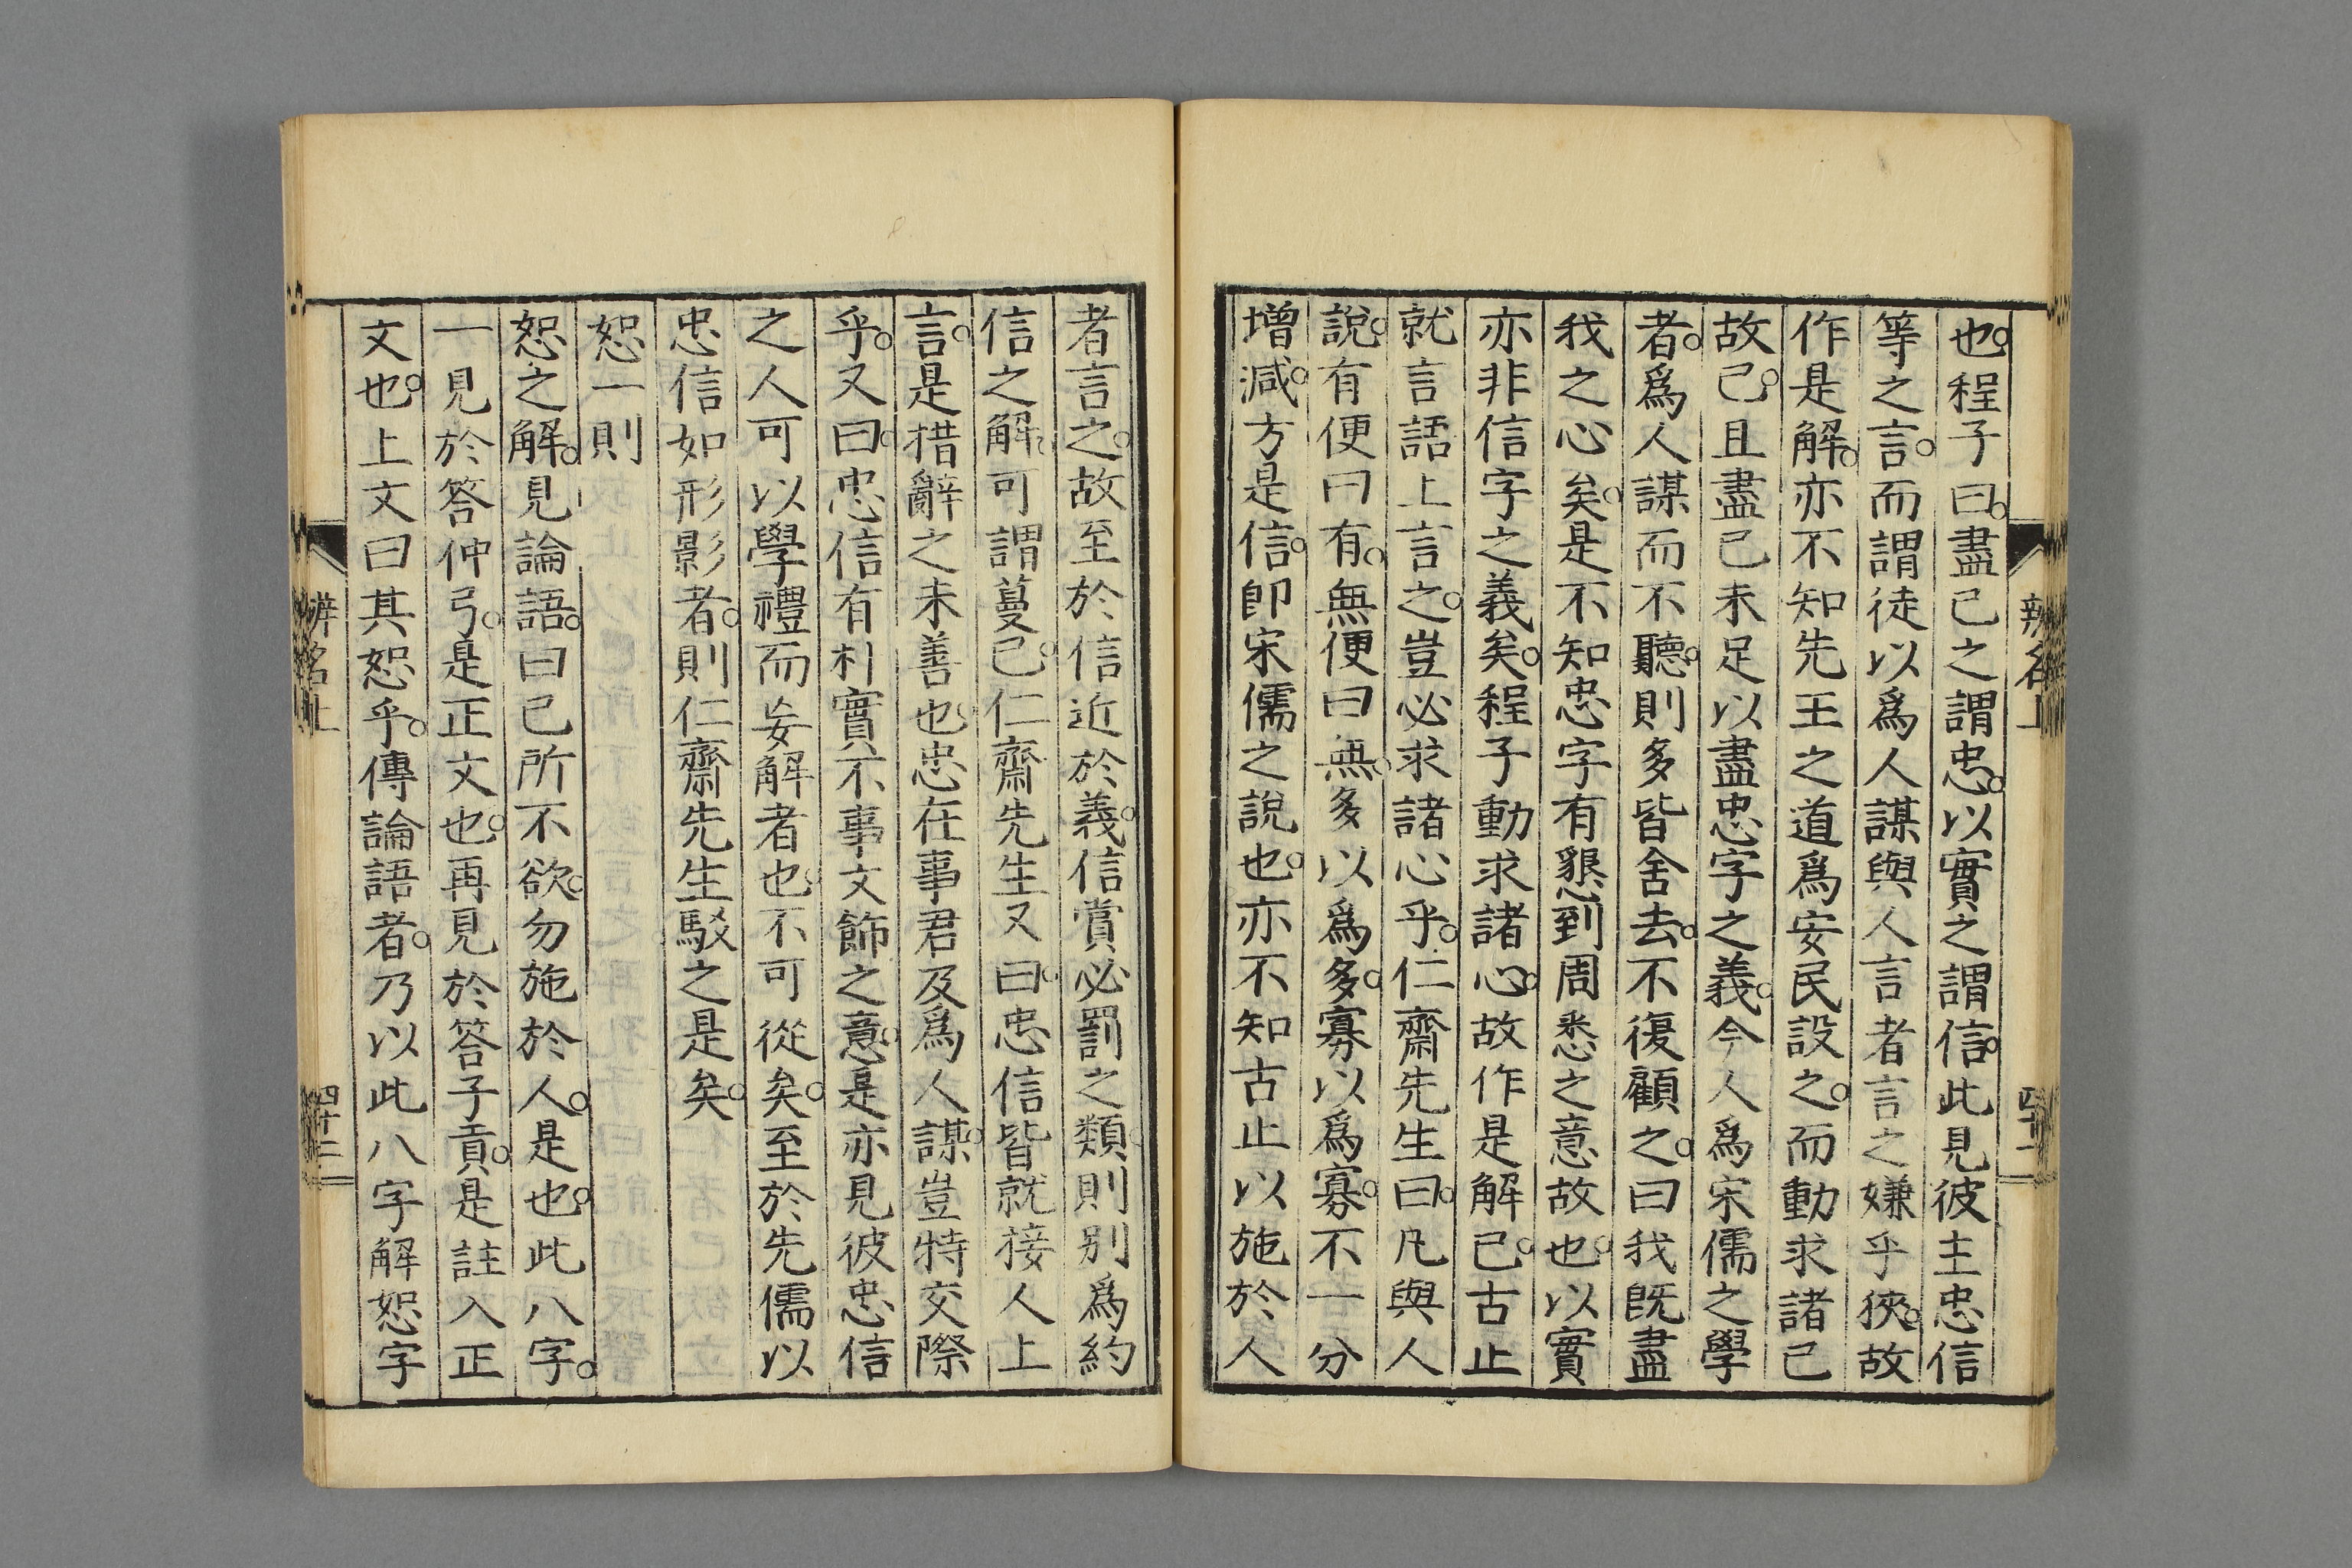 也。程子曰。盡己之謂忠。以實之謂信。此見彼主忠信
等之言。而謂徒以爲人謀與人言者言之嫌乎狹。故
作是解。亦不知先王之道爲安民設之。而動求諸己
故已。且盡己未足以盡忠字之義。今人爲宋儒之學
者。爲人謀而不聽。則多皆舍去。不復顧之。曰我既盡
我之心矣。是不知忠字有懇到周悉之意故也。以實
亦非信字之義矣。程子動求諸心。故作是解已。古止
就言語上言之。豈必求諸心乎。仁齋先生曰。凡與人
說。有便曰有。無便曰無。多以爲多。寡以爲寡。不一分
增減。方是信。卽宋儒之說也。亦不知古止以施於人
辨名上
四十二
者言之。故至於信近於義。信賞必罰之類。則別爲約
信之解。可謂蔓已。仁齋先生又曰。忠信皆就接人上
言。是措辭之未善也。忠在事君及爲人謀。豈特交際
乎。又曰。忠信有朴實不事文飾之意。是亦見彼忠信
之人可以學禮而妄解者也。不可從矣。至於先儒以
忠信如形影者。則仁齋先生駁之是矣。
恕一則
恕之解。見論語。曰己所不欲。勿施於人。是也。此八字。
一見於答仲弓。是正文也。再見於答子貢。是註入正
文也。上文曰其恕乎。傳論語者。乃以此八字解恕字
辨名上
四十三